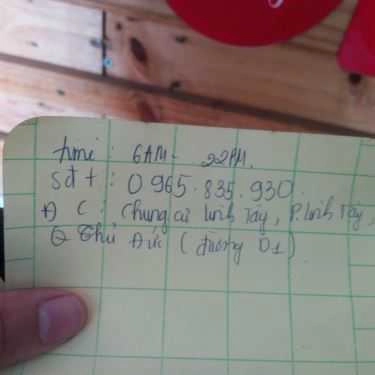 time : 6AM - 22PM.
sđt : 0965.835.930.
Đ C : Chung cư Linh Tây, P. Linh Tây,
Q Thủ Đức ( đường D1 )